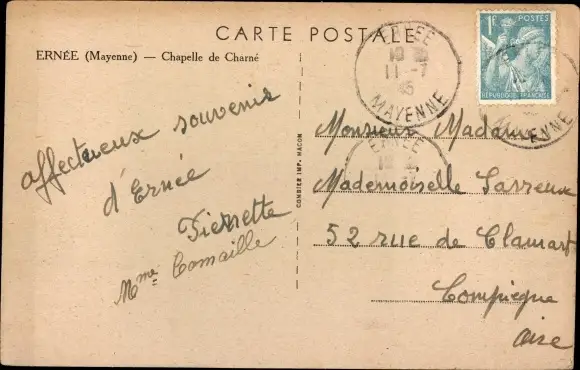 CARTE POSTALE
ERNÉE (Mayenne) — Chapelle de Charné
affectueux souvenir
d'Ernée
Pierrette
Mme Comaille
COMBIER IMP. MACON
ERNÉE
11 -7
45
MAYENNE
1F POSTES
RÉPUBLIQUE FRANÇAISE
ERNÉE
Monsieur Madame
Mademoiselle Sarreux
52 rue de Clamart
Compiègne
Oise